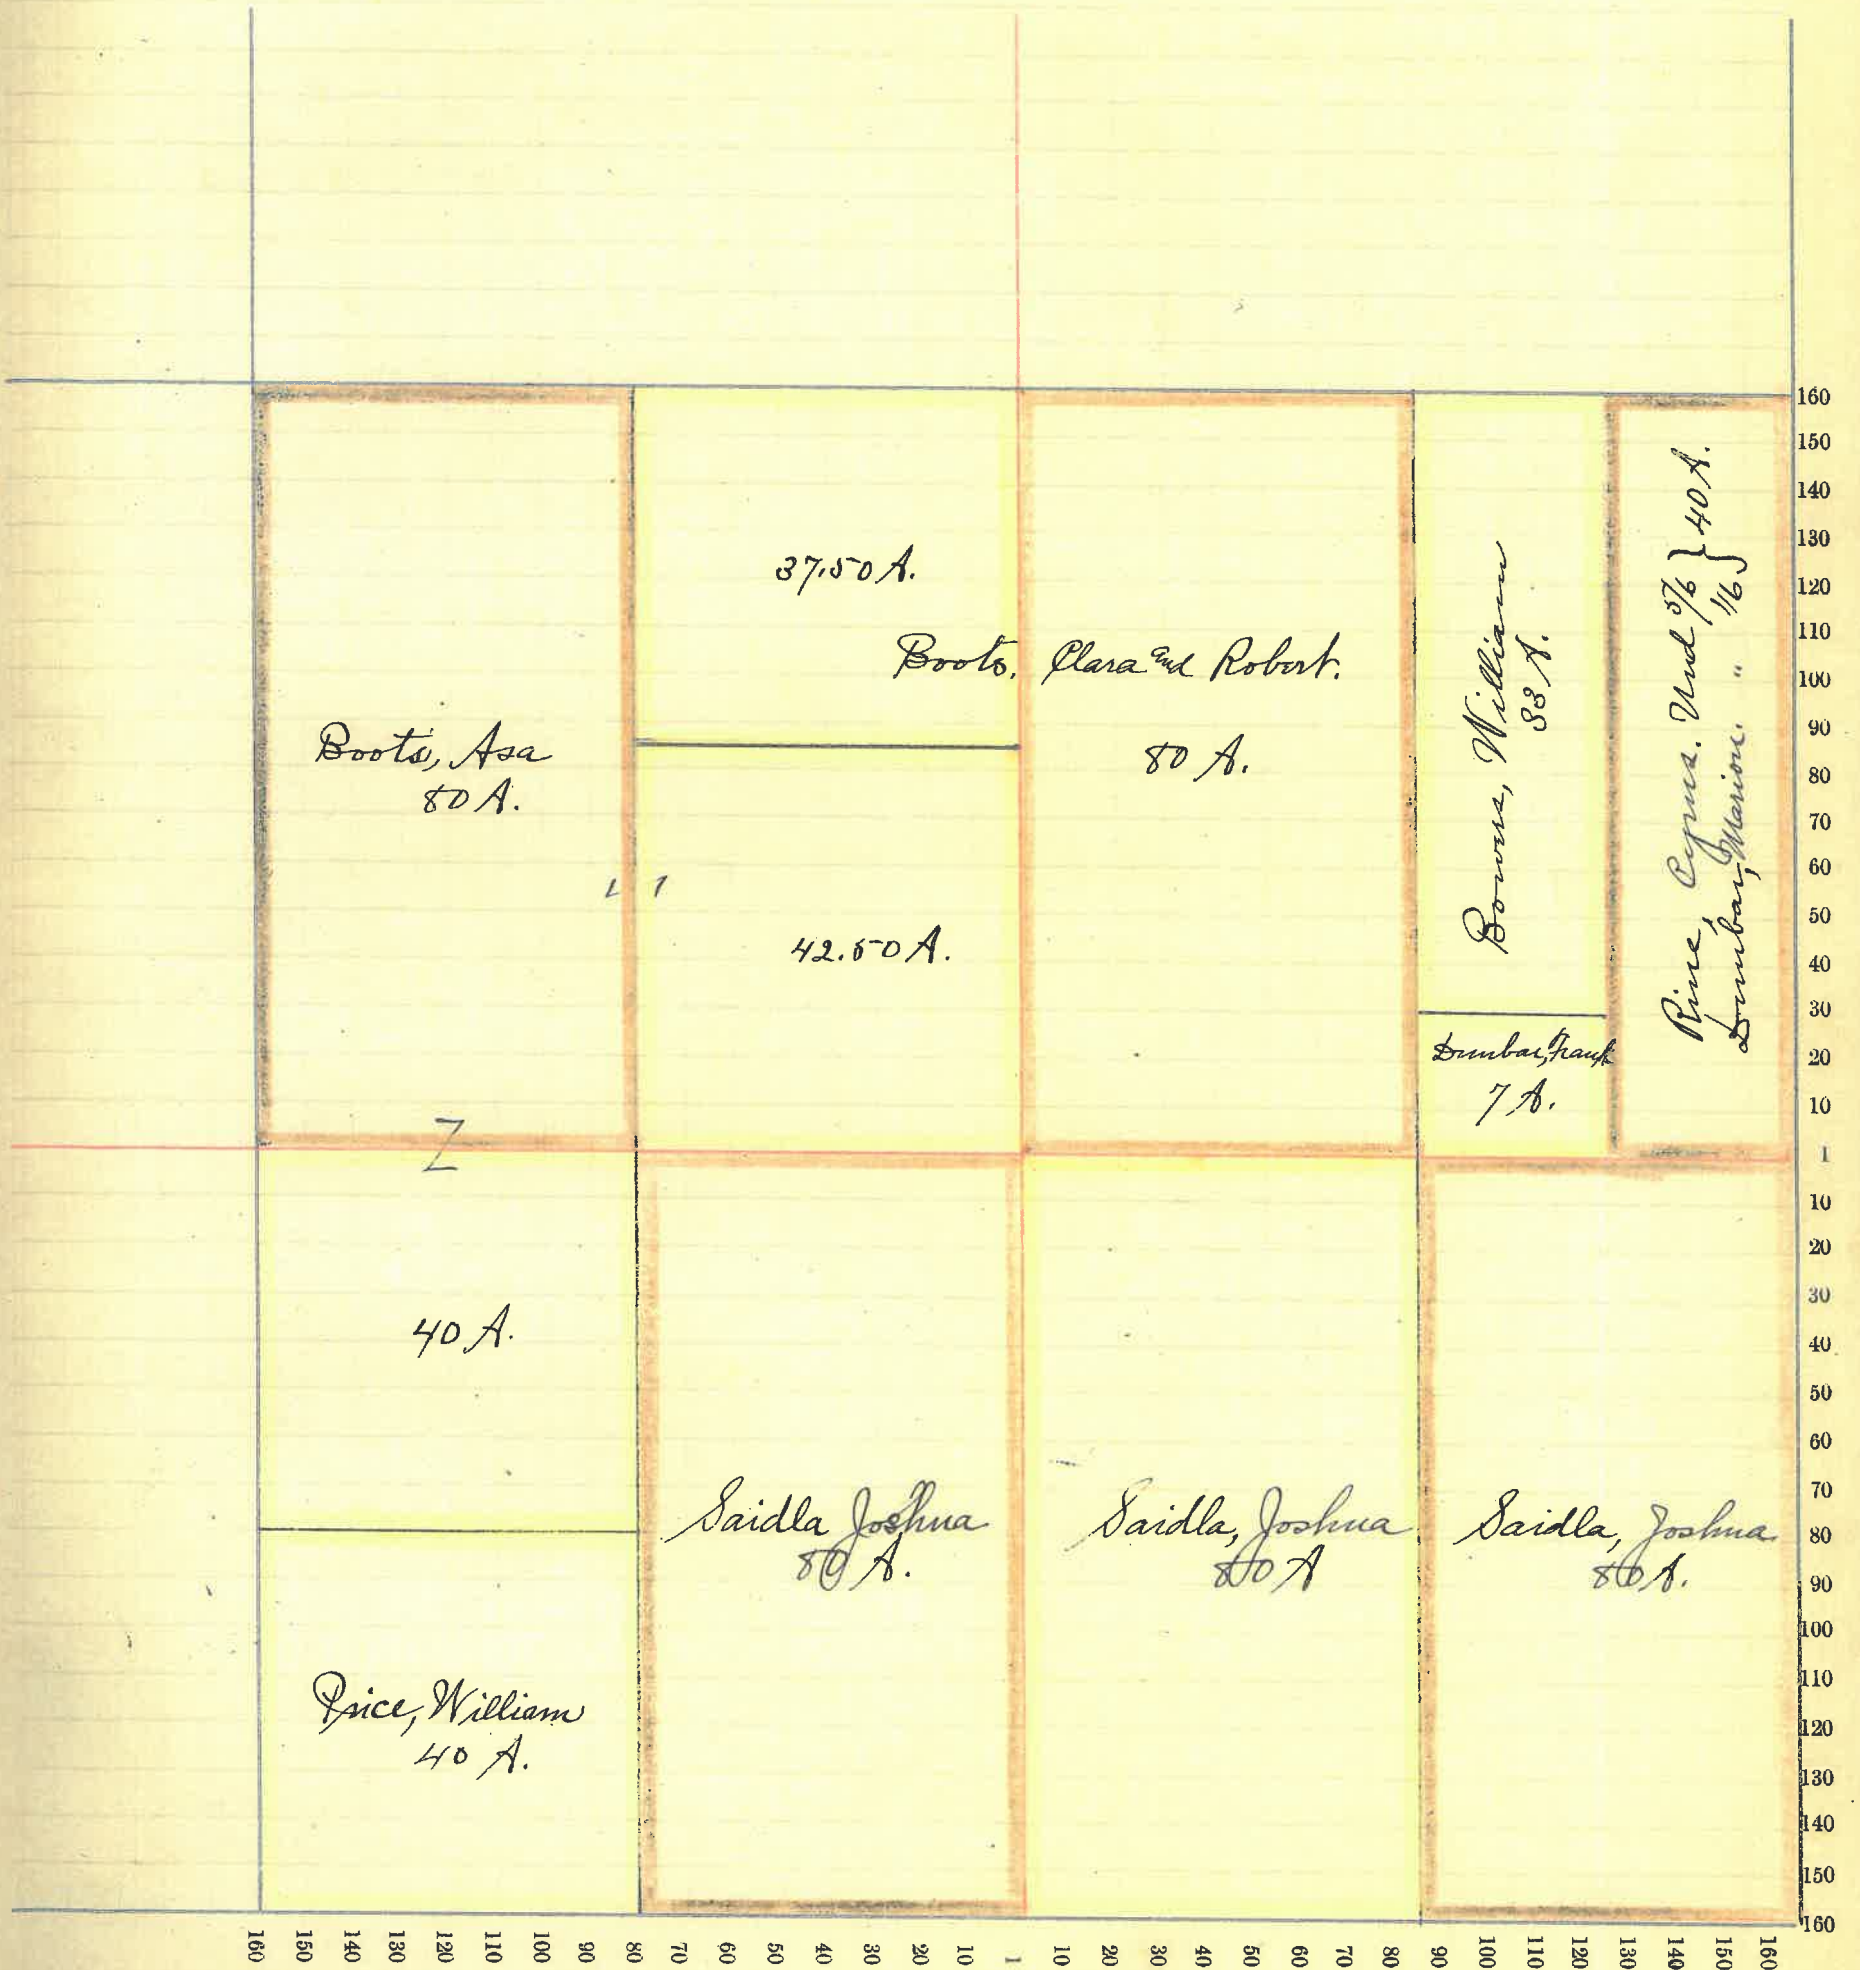 37.50 A.
Boots, Clara and Robert.
80 A.
Boots, Asa
80 A.
42.50 A.
Bowers, William
33 A.
Dunbar, Frank
7 A.
Rine, Cyrus. Und 5/6 } 40 A.
Dunbar, Marion. " 1/6
Z
40 A.
Price, William
40 A.
Saidla Joshua
80 A.
Saidla, Joshua
80 A
Saidla, Joshua
80 A.
160
150
140
130
120
110
100
90
80
70
60
50
40
30
20
10
1
10
20
30
40
50
60
70
80
90
100
110
120
130
140
150
160
160 150 140 130 120 110 100 90 80 70 60 50 40 30 20 10 1 10 20 30 40 50 60 70 80 90 100 110 120 130 140 150 160